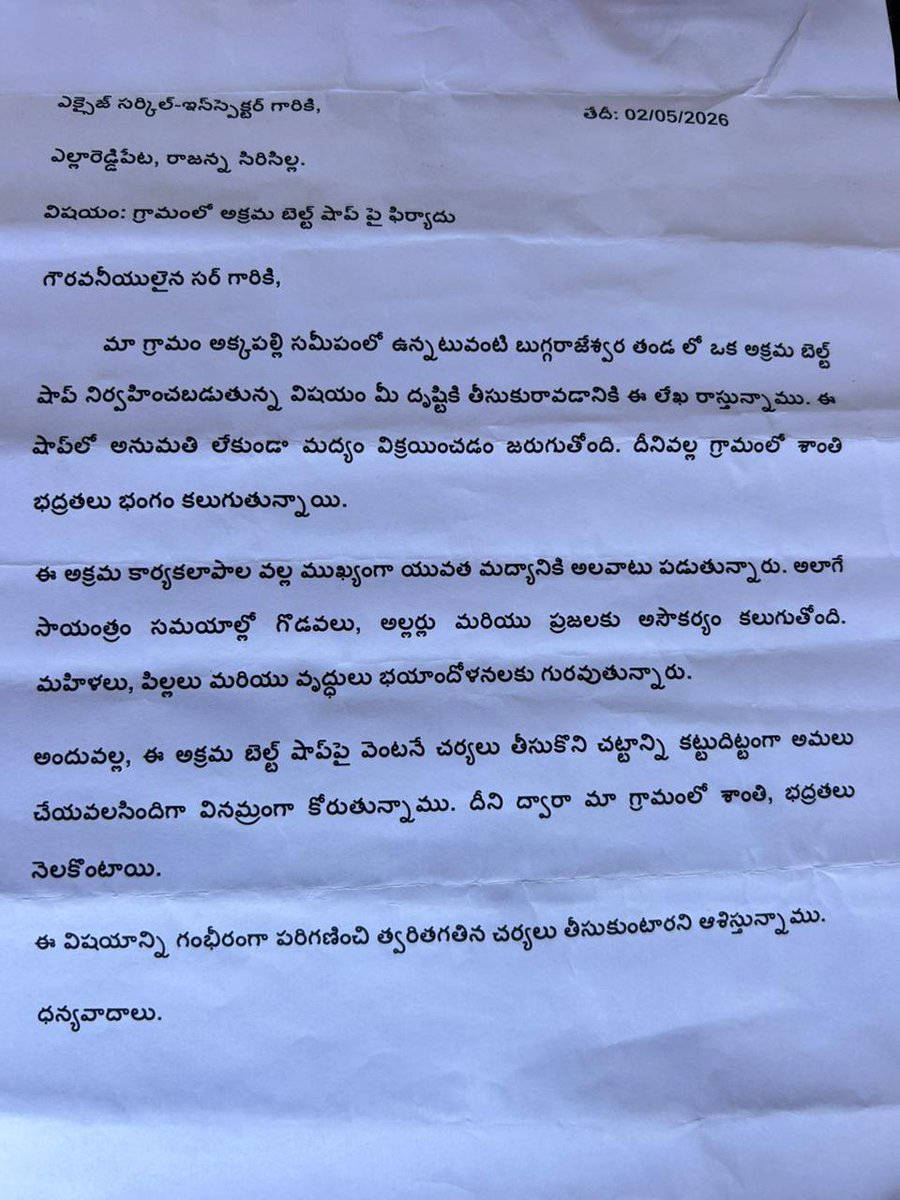 ఎక్సైజ్ సర్కిల్-ఇన్‌స్పెక్టర్ గారికి, తేదీ: 02/05/2026
ఎల్లారెడ్డిపేట, రాజన్న సిరిసిల్ల.
విషయం: గ్రామంలో అక్రమ బెల్ట్ షాప్ పై ఫిర్యాదు
గౌరవనీయులైన సర్ గారికి,
మా గ్రామం అక్కపల్లి సమీపంలో ఉన్నటువంటి బుగ్గరాజేశ్వర తండ లో ఒక అక్రమ బెల్ట్
షాప్ నిర్వహించబడుతున్న విషయం మీ దృష్టికి తీసుకురావడానికి ఈ లేఖ రాస్తున్నాము. ఈ
షాప్‌లో అనుమతి లేకుండా మద్యం విక్రయించడం జరుగుతోంది. దీనివల్ల గ్రామంలో శాంతి
భద్రతలు భంగం కలుగుతున్నాయి.
ఈ అక్రమ కార్యకలాపాల వల్ల ముఖ్యంగా యువత మద్యానికి అలవాటు పడుతున్నారు. అలాగే
సాయంత్రం సమయాల్లో గొడవలు, అల్లర్లు మరియు ప్రజలకు అసౌకర్యం కలుగుతోంది.
మహిళలు, పిల్లలు మరియు వృద్ధులు భయాందోళనలకు గురవుతున్నారు.
అందువల్ల, ఈ అక్రమ బెల్ట్ షాప్‌పై వెంటనే చర్యలు తీసుకొని చట్టాన్ని కట్టుదిట్టంగా అమలు
చేయవలసిందిగా వినమ్రంగా కోరుతున్నాము. దీని ద్వారా మా గ్రామంలో శాంతి, భద్రతలు
నెలకొంటాయి.
ఈ విషయాన్ని గంభీరంగా పరిగణించి త్వరితగతిన చర్యలు తీసుకుంటారని ఆశిస్తున్నాము.
ధన్యవాదాలు.